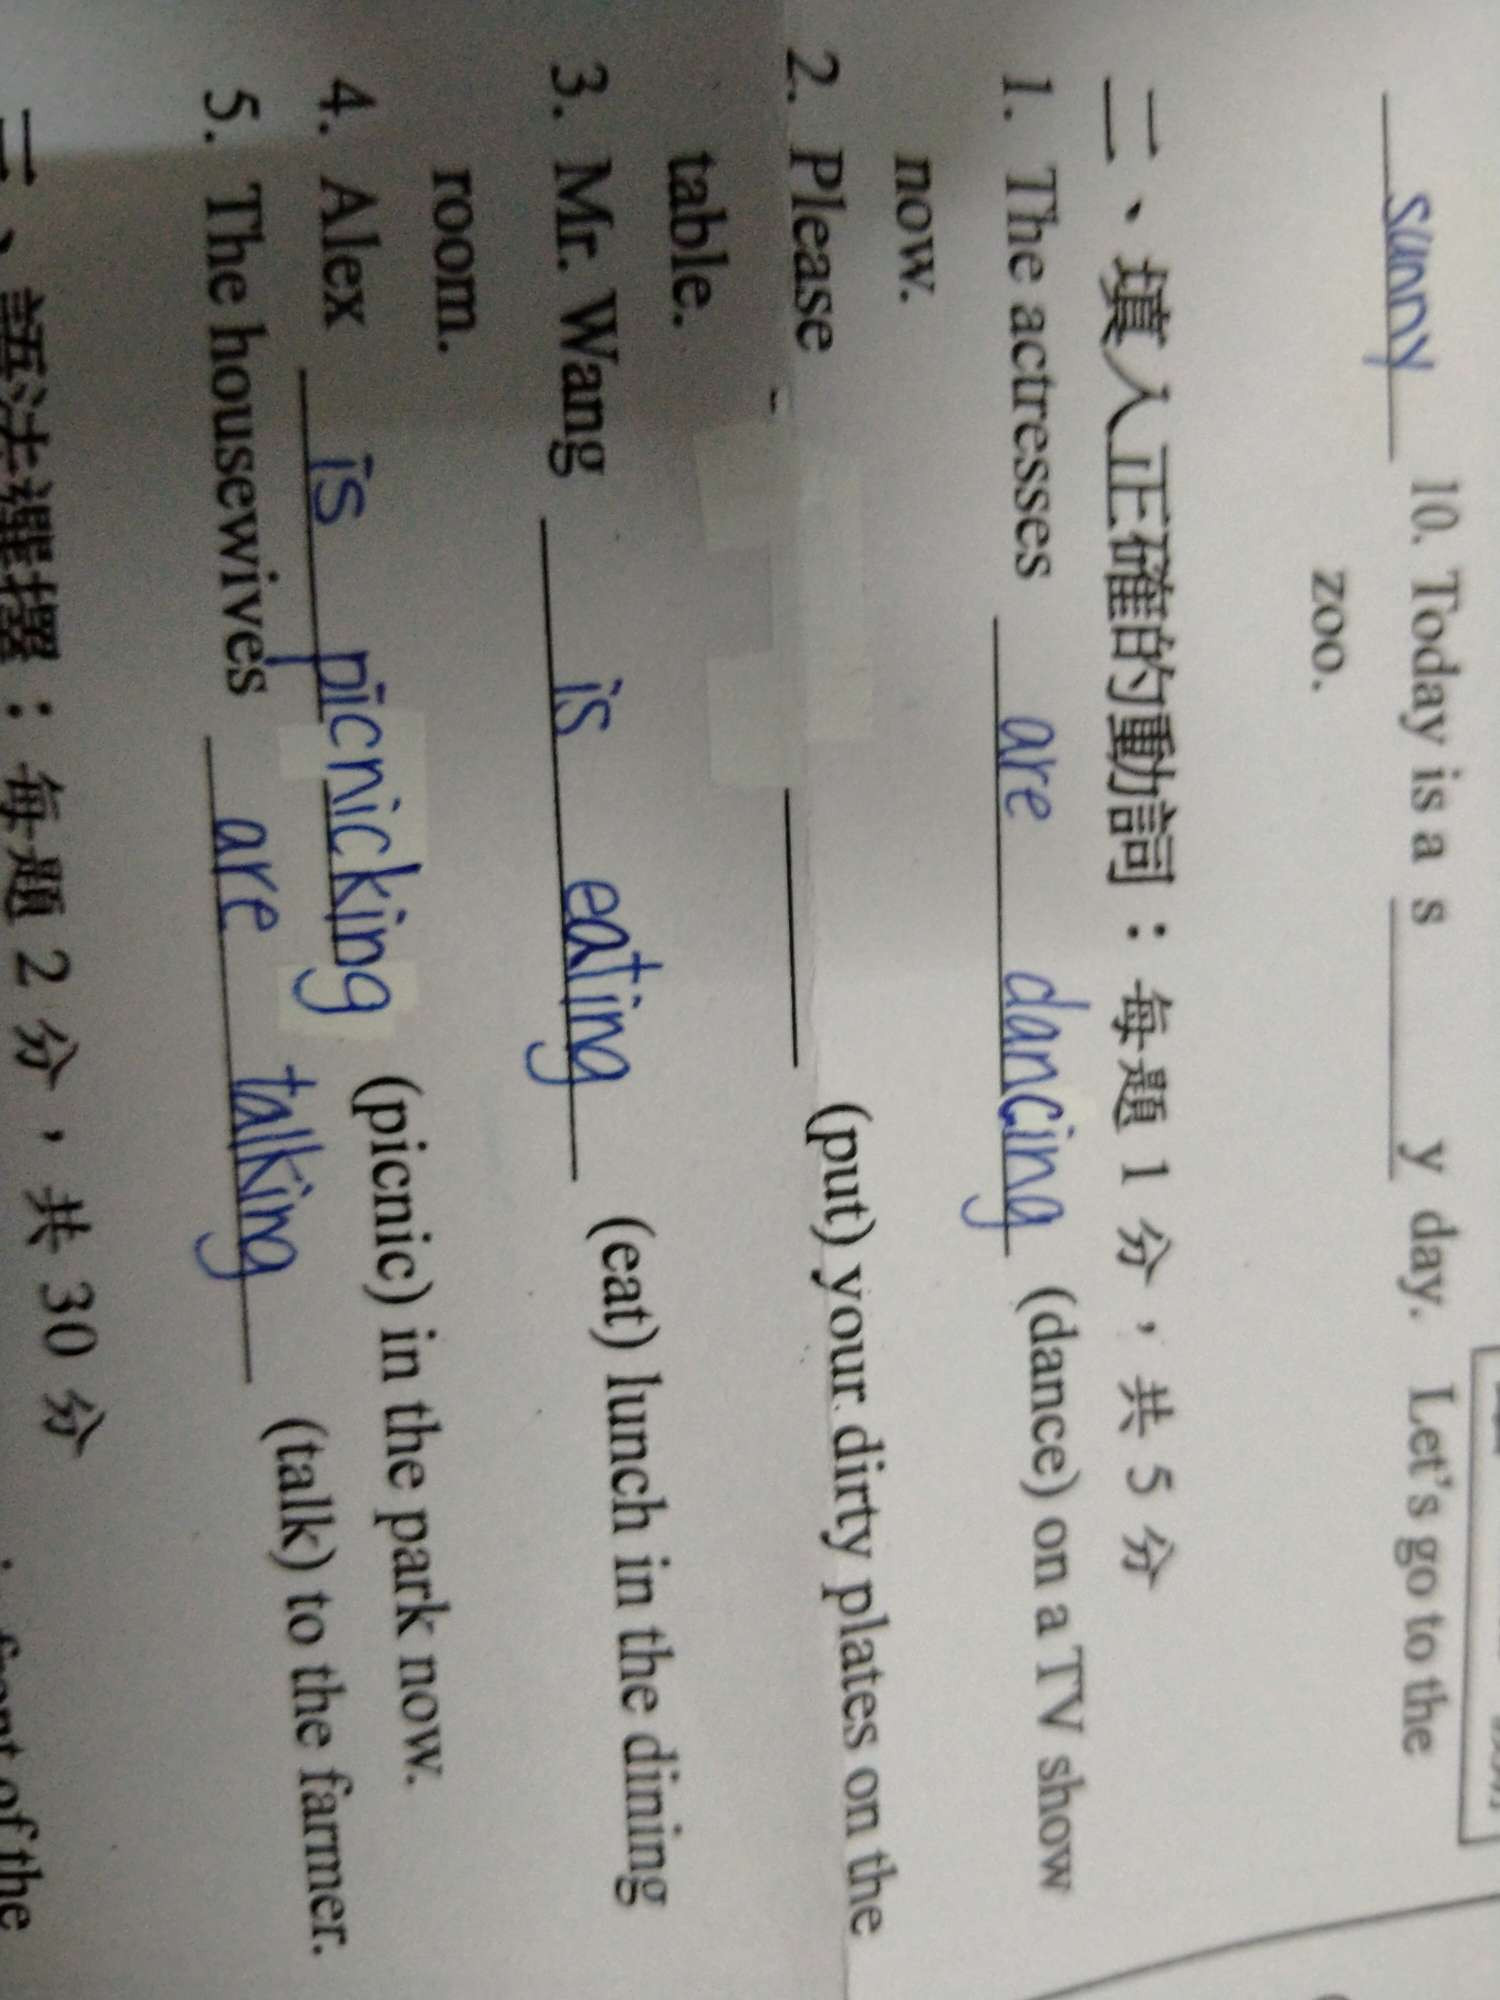 sunny 10. Today is a s y day. Let's go to the
zoo.
二、填入正確的動詞：每題 1 分，共 5 分
1. The actresses are dancing (dance) on a TV show
now.
2. Please (put) your dirty plates on the
table.
3. Mr. Wang is eating (eat) lunch in the dining
room.
4. Alex is picnicking (picnic) in the park now.
5. The housewives are talking (talk) to the farmer.
語法選擇：每題 2 分，共 30 分
of the